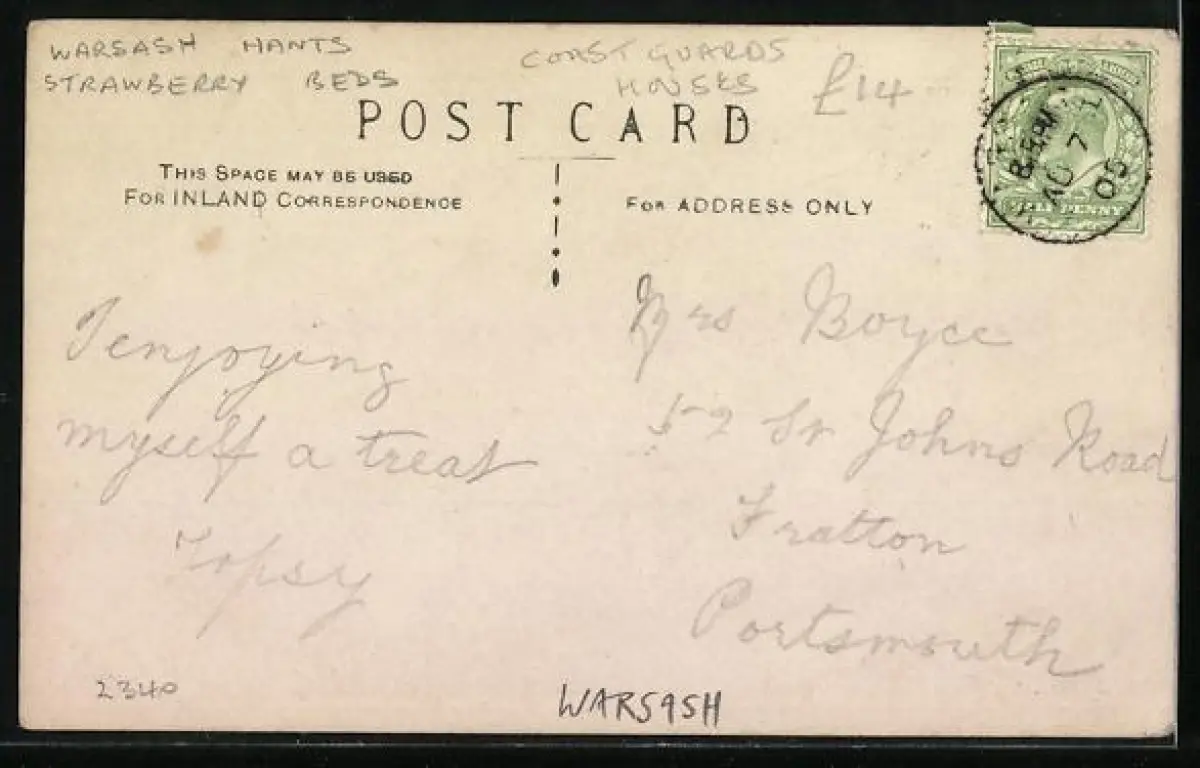 WARSASH HANTS
STRAWBERRY BEDS
COAST GUARDS
HOUSES
£14
POST CARD
THIS SPACE MAY BE USED
FOR INLAND CORRESPONDENCE
FOR ADDRESS ONLY
AU 7
05
PENNY
I enjoying
myself a treat
Topsy
Mrs Boyce
52 St Johns Road
Fratton
Portsmouth
2340
WARSASH